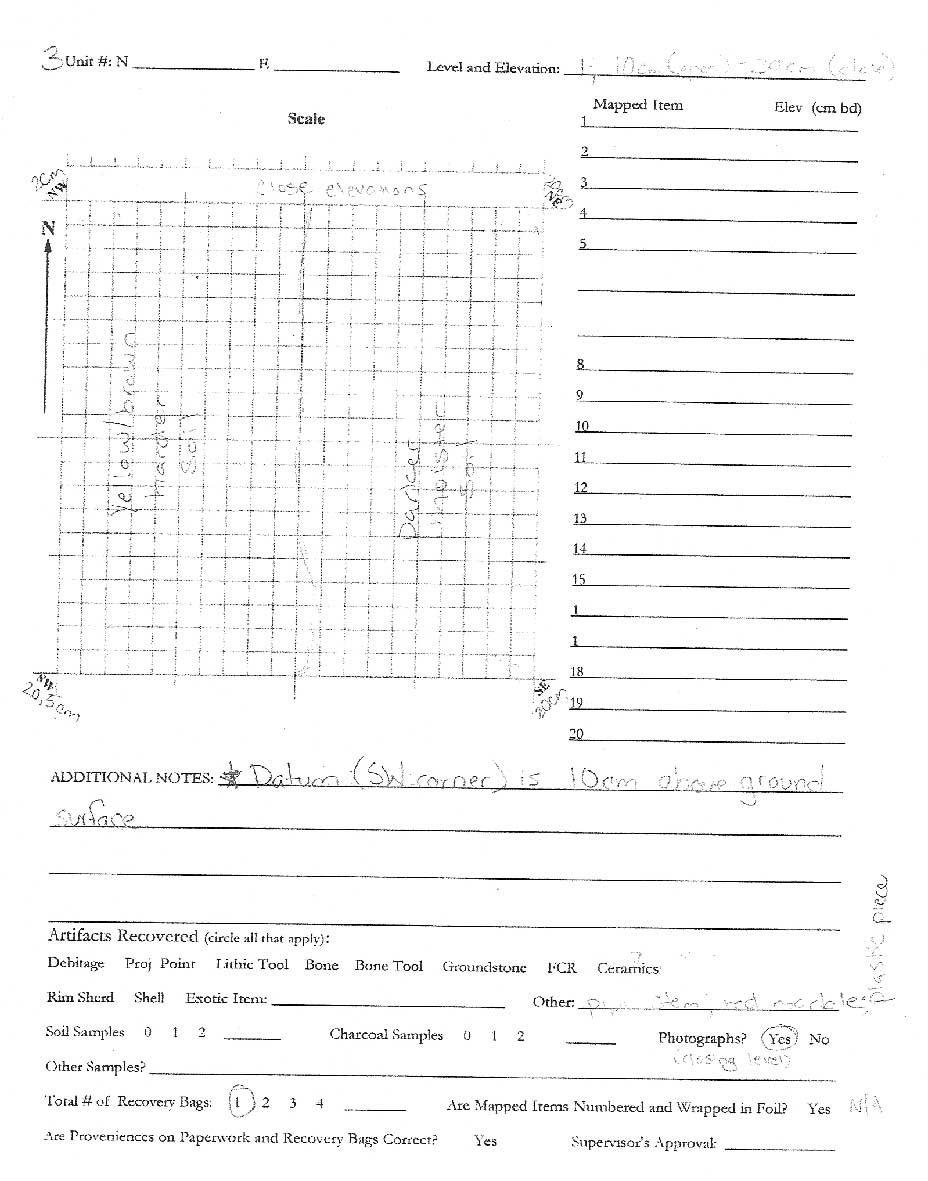 3 Unit #: N ____ E ____ Level and Elevation: 1; 10cm (open) - 20cm (close)
Scale
Mapped Item Elev (cm bd)
1
2
3
4
5
8
9
10
11
12
13
14
15
1
1
18
19
20
NW
NE
close elevations
N
Yellow/brown
harder
soil
Darker
moister
soil
NW
20.5cm
SE
20cm
ADDITIONAL NOTES: * Datum (SW corner) is 10cm above ground
surface
Artifacts Recovered (circle all that apply):
Debitage Proj Point Lithic Tool Bone Bone Tool Groundstone FCR Ceramics ?
Rim Sherd Shell Exotic Item: ____ Other: stem, red marble, plastic piece
Soil Samples 0 1 2 ____ Charcoal Samples 0 1 2 ____ Photographs? Yes No
(closing level)
Other Samples?
Total # of Recovery Bags: 1 2 3 4 ____ Are Mapped Items Numbered and Wrapped in Foil? Yes N/A
Are Proveniences on Paperwork and Recovery Bags Correct? Yes Supervisor's Approval: ____